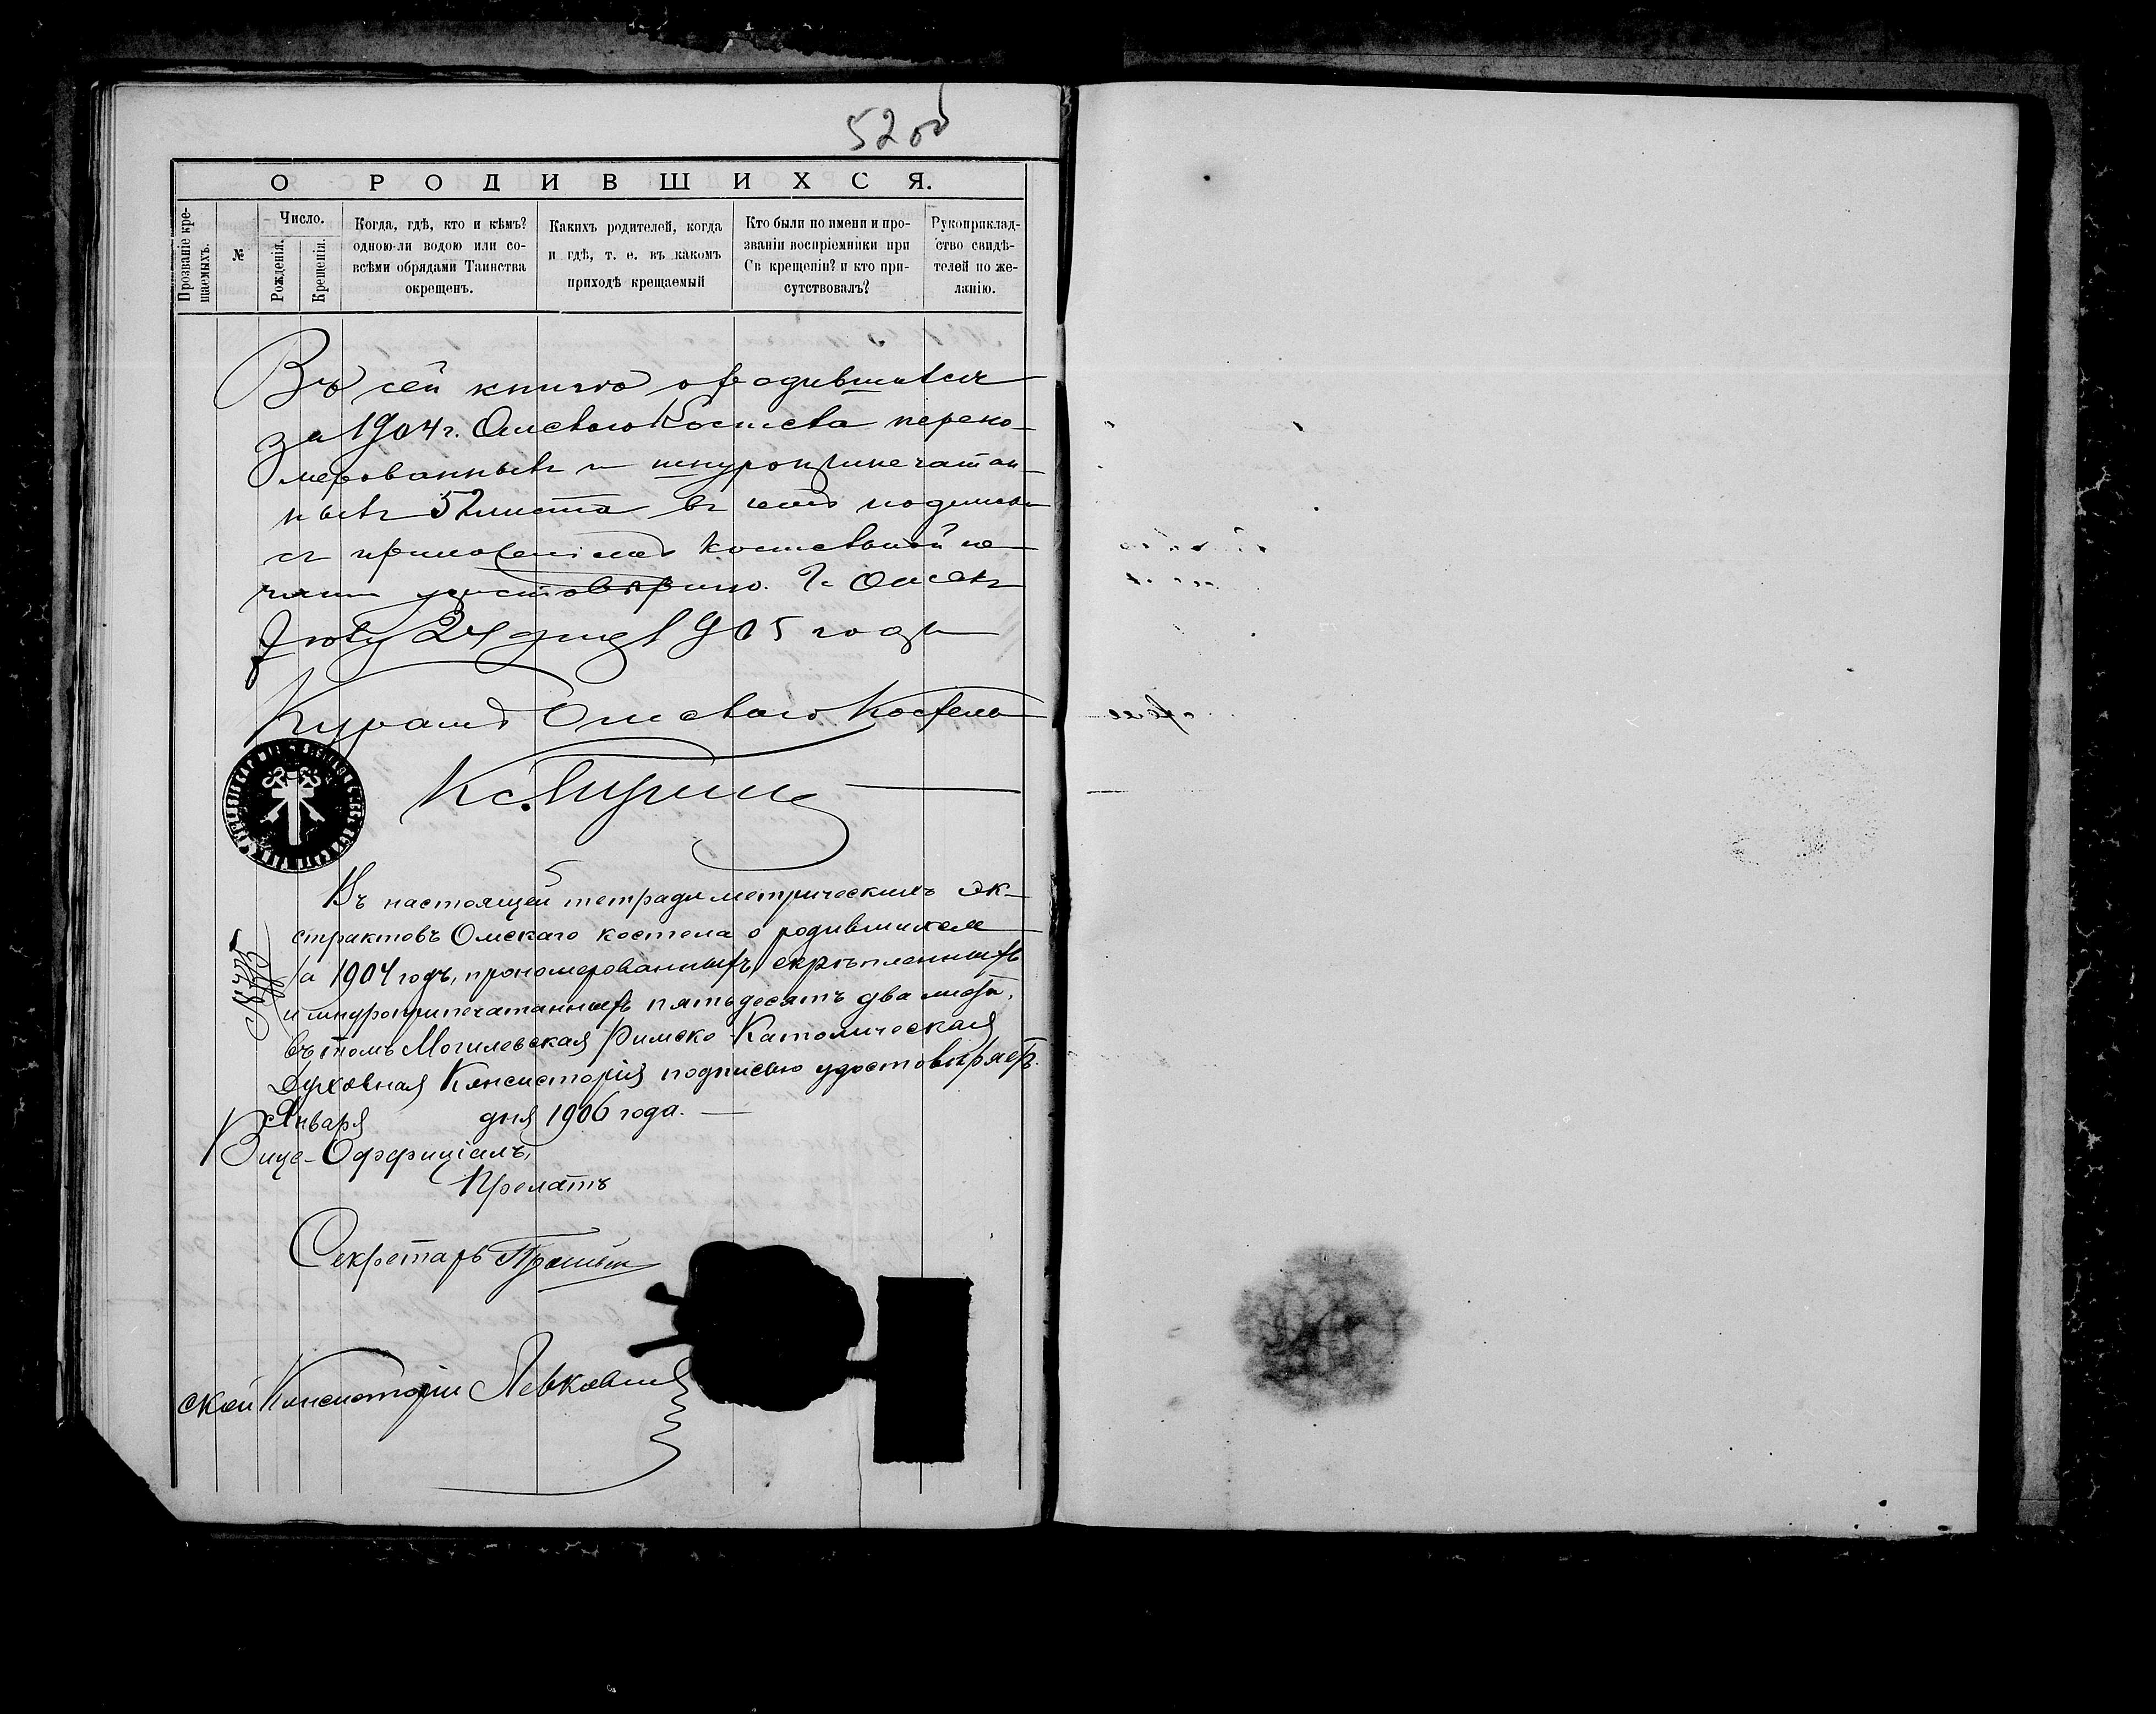 52 об
О РОДИВШИХСЯ.
Прозваніе кре-
щаемыхъ.
№
Число.
Рожденія.
Крещенія.
Когда, гдѣ, кто и кѣмъ?
одною-ли водою или со-
всѣми обрядами Таинства
окрещенъ.
Какихъ родителей, когда
и гдѣ, т. е. въ какомъ
приходѣ крещаемый
Кто были по имени и про-
званіи воспріемники при
Св крещеніи? и кто при-
сутствовалъ?
Рукоприклад-
ство свидѣ-
телей по же-
ланію.
Въ сей книгѣ о родившихся
за 1904 г. Омскаго Костела перено-
мерованныхъ и шнуроприпечатан-
ныхъ 52 листа въ чемъ подписью
съ приложеніемъ костельной пе
чати удостовѣряю. Г. Омскъ
24 дня 1905 года
Куратъ Омскаго Костела
Въ настоящей тетради метрическихъ эк-
страктовъ Омскаго костела о родившихся
за 1904 годъ, прономерованныхъ, скрѣпленныхъ
и шнуроприпечатанныхъ пятьдесятъ два листа,
въ томъ Могилевская Римско-Католическая
Духовная Консисторія подписью удостовѣряетъ.
Января дня 1906 года.
Вице-Оффиціалъ,
Прелатъ
Секретарь
ской Консисторіи Левковичъ